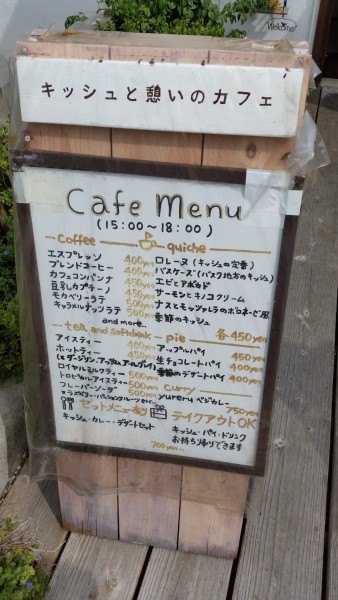 Welcome!
キッシュと憩いのカフェ
Cafe Menu
(15:00~18:00)
Coffee
エスプレッソ 400yen
ブレンドコーヒー 400yen
カフェコンパンナ
豆乳カプチーノ 500yen
モカベリーラテ 500yen
キャラメルナッツラテ 500yen
and more...
quiche
ロレーヌ(キッシュの定番)
バスケーズ(バスク地方のキッシュ)
エビとアボカド
サーモンとキノコクリーム
ナスとモッツァレラのボロネーゼ風
季節のキッシュ
各450yen
tea and softdrink
アイスティー 400yen
ホットティー 450yen
ロイヤルミルクティー 500yen
トロピカルアイスティー 500yen
フレーバーソーダ 500yen
pie
アップルパイ 450yen
生チョコレートパイ 400yen
季節のデザートパイ 400yen
curry
yureru ベジカレー 750yen
セットメニュー有り
キッシュ・カレー・デザートセット
700yen~
テイクアウトOK
キッシュ・パイ・ドリンク
お持ち帰りできます